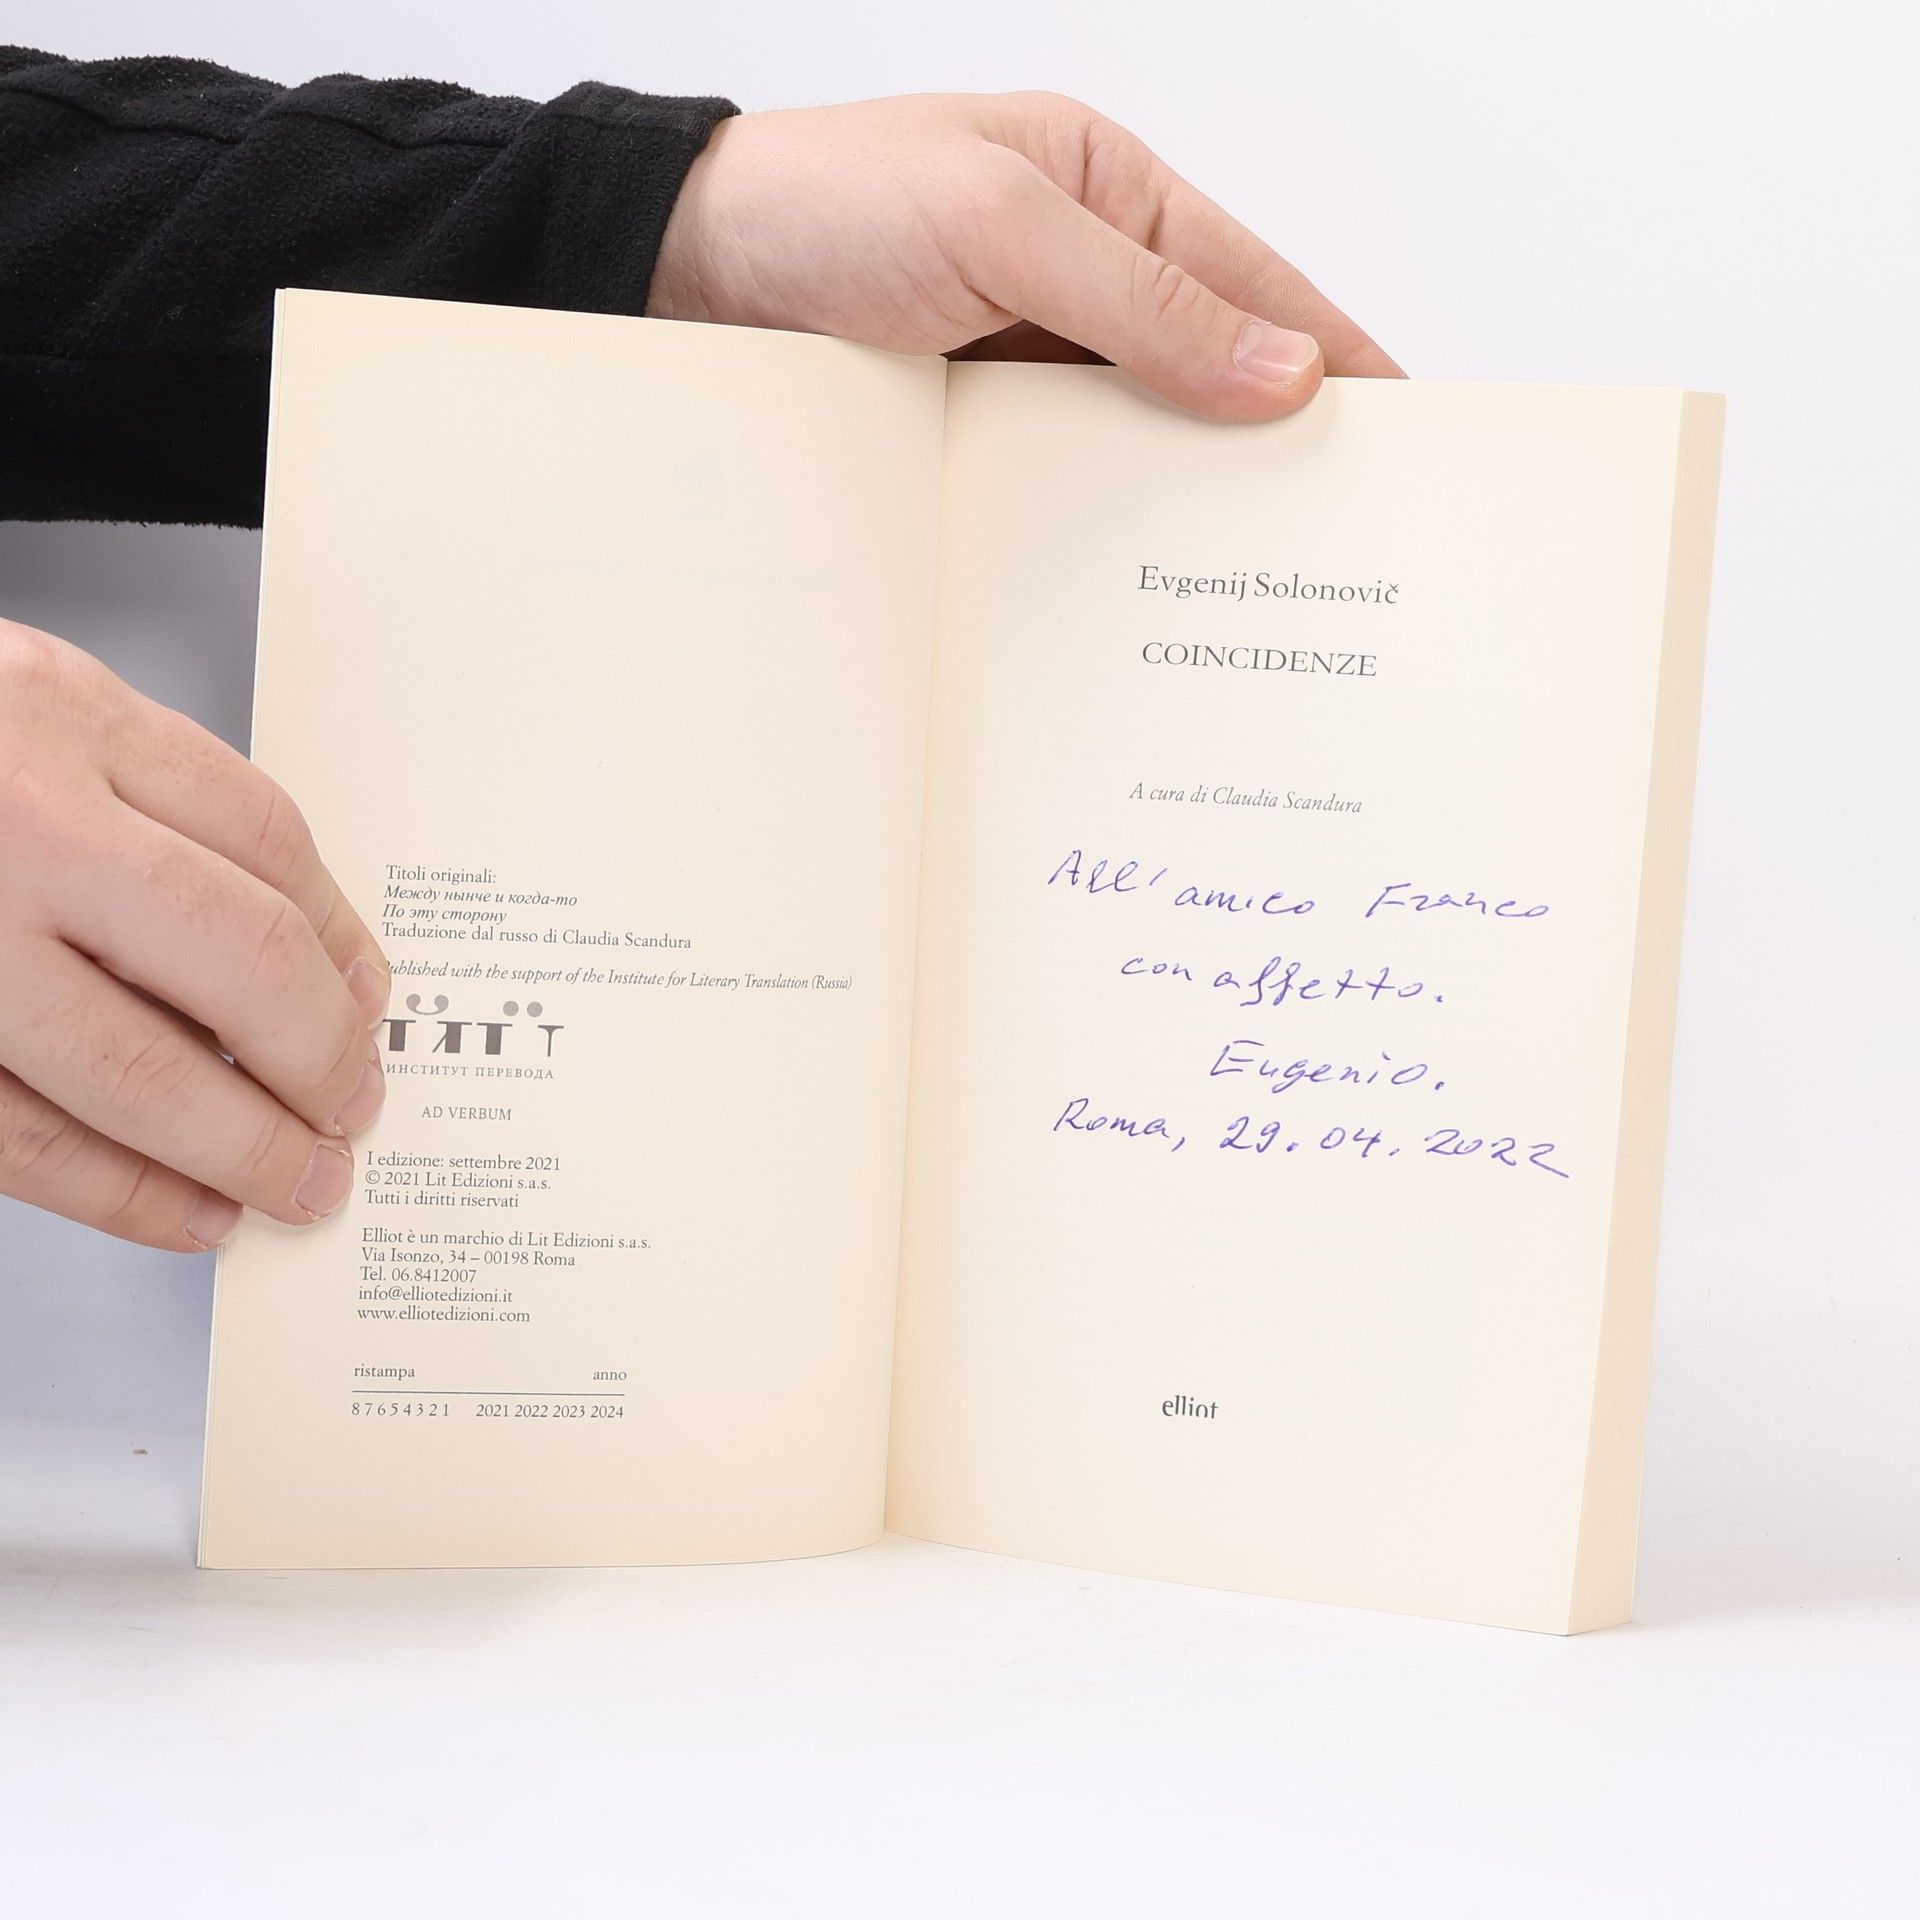 Titoli originali:
Между нынче и когда-то
По эту сторону
Traduzione dal russo di Claudia Scandura
Published with the support of the Institute for Literary Translation (Russia)
ИНСТИТУТ ПЕРЕВОДА
AD VERBUM
I edizione: settembre 2021
© 2021 Lit Edizioni s.a.s.
Tutti i diritti riservati
Elliot è un marchio di Lit Edizioni s.a.s.
Via Isonzo, 34 – 00198 Roma
Tel. 06.8412007
info@elliotedizioni.it
www.elliotedizioni.com
ristampa anno
8 7 6 5 4 3 2 1 2021 2022 2023 2024
Evgenij Solonovič
COINCIDENZE
A cura di Claudia Scandura
All' amico Franco
con affetto.
Eugenio.
Roma, 29.04.2022
elliot